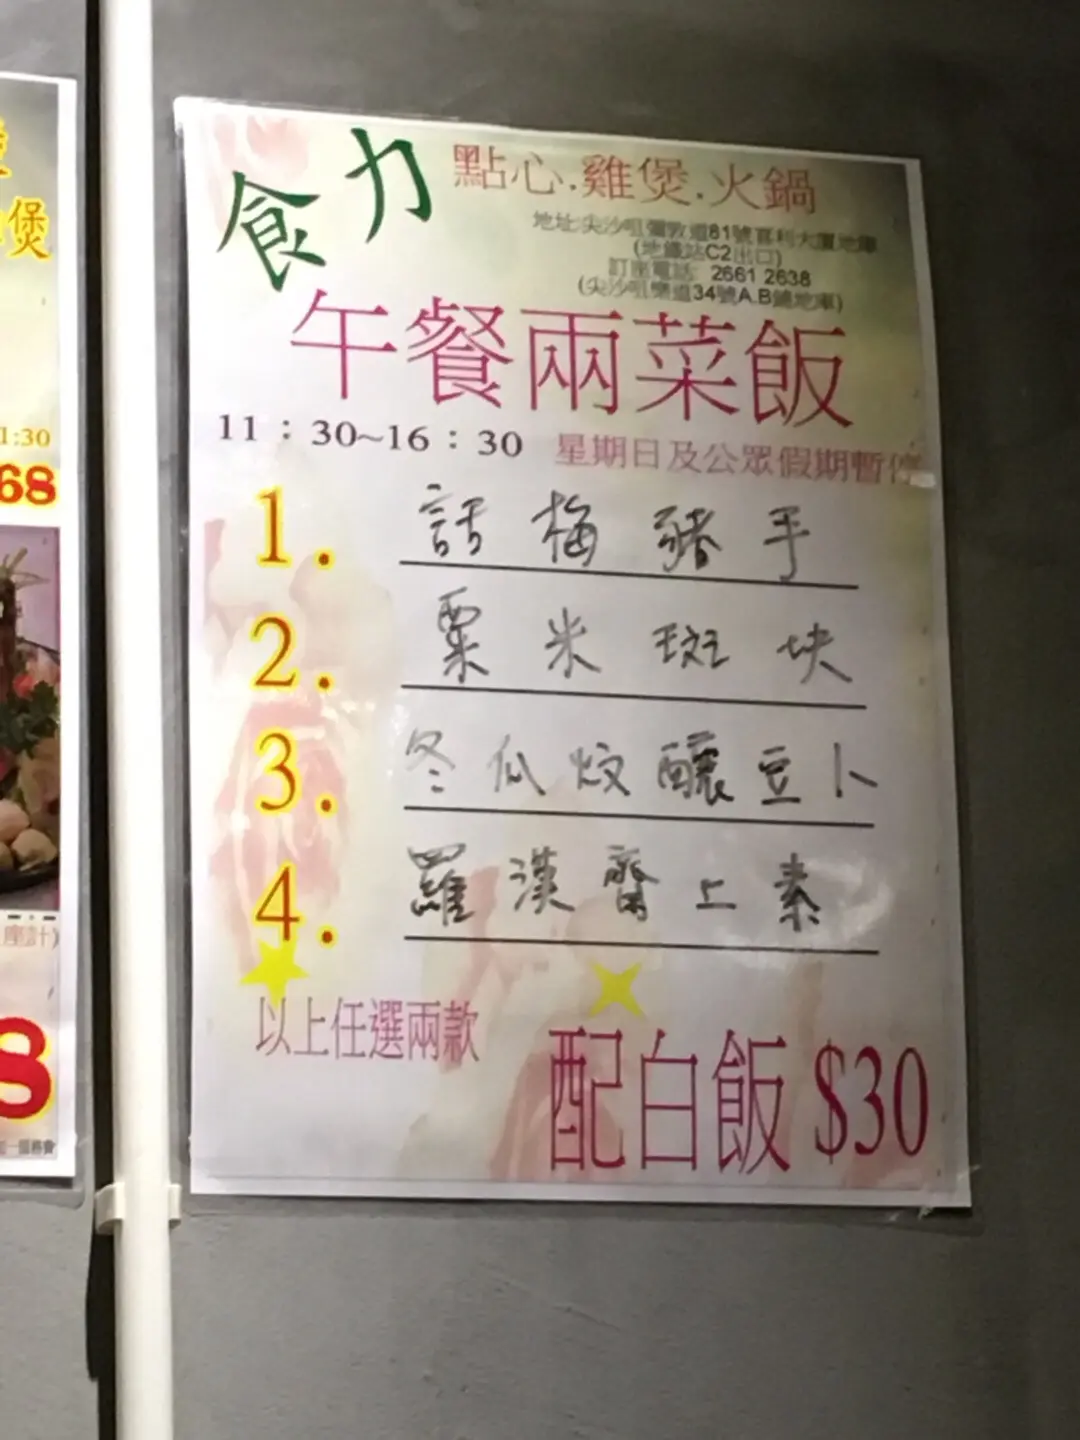 煲
1:30
68
座計)
8
食力
點心.雞煲.火鍋
地址:尖沙咀彌敦道81號喜利大廈地庫
(地鐵站C2出口)
訂座電話: 2661 2638
(尖沙咀樂道34號A.B舖地庫)
午餐兩菜飯
11：30~16：30 星期日及公眾假期暫停
1. 話梅豬手
2. 粟米斑块
3. 冬瓜炆釀豆卜
4. 羅漢齋上素
以上任選兩款
配白飯 $30